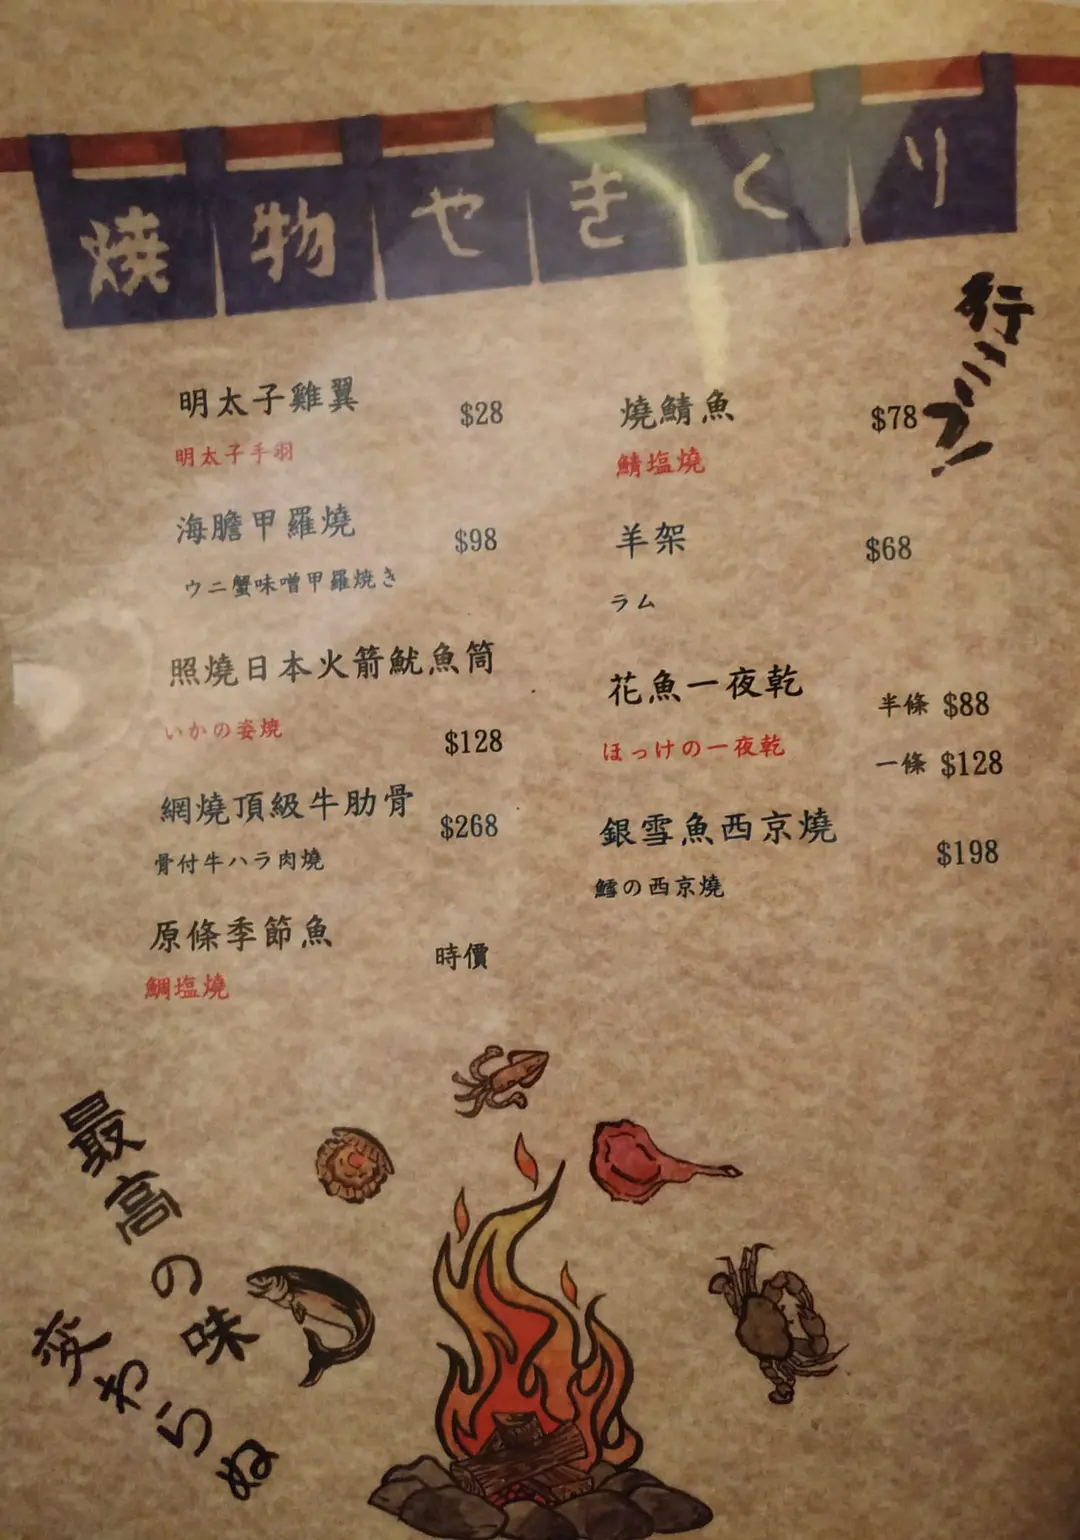 焼物やきくり
行こう!
明太子雞翼 $28
明太子手羽
海膽甲羅燒 $98
ウニ蟹味噌甲羅焼き
照燒日本火箭魷魚筒 $128
いかの姿燒
網燒頂級牛肋骨 $268
骨付牛ハラ肉燒
原條季節魚 時價
鯛塩燒
燒鯖魚 $78
鯖塩燒
羊架 $68
ラム
花魚一夜乾 半條 $88
ほっけの一夜乾 一條 $128
銀雪魚西京燒 $198
鱈の西京燒
最高の味
変わらぬ